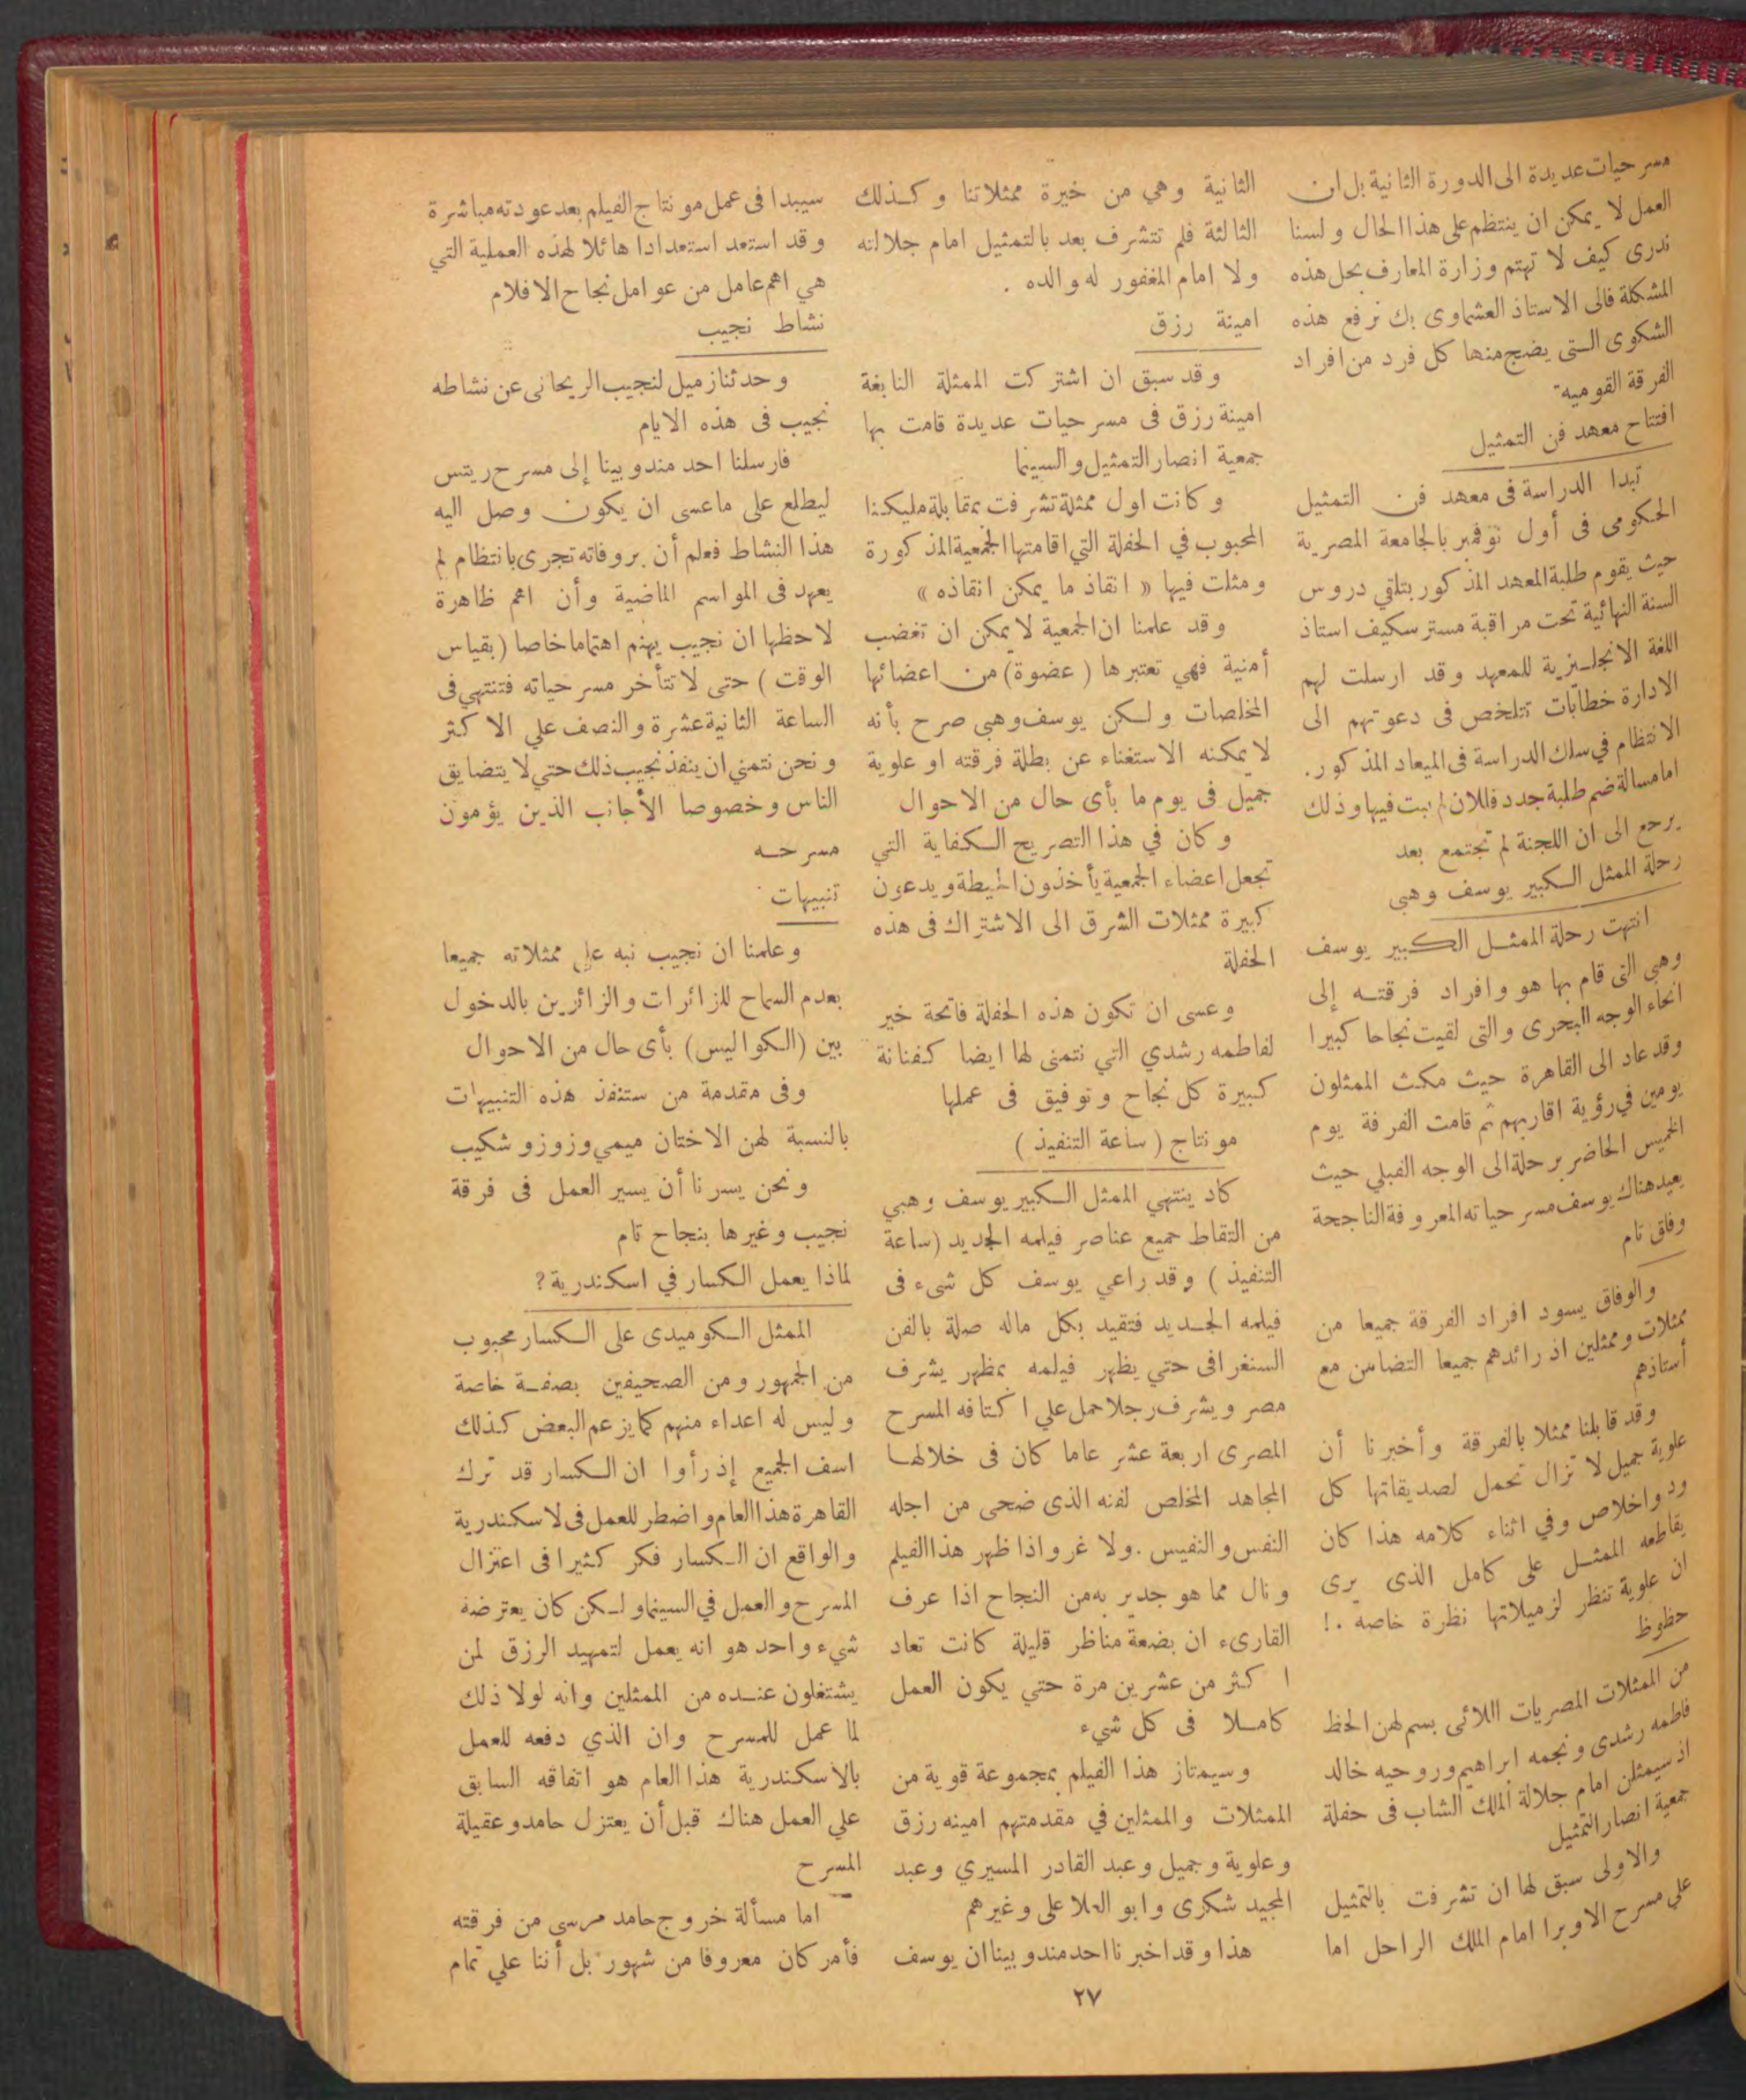 مسرحيات عديدة الى الدورة الثانية بل ان
العمل لا يمكن ان ينتظم على هذا الحال ولسنا
ندرى كيف لا تهتم وزارة المعارف بحل هذه
المشكلة فالى الاستاذ العشماوى بك نرفع هذه
الشكوى التى يضج منها كل فرد من افراد
الفرقة القوميه
افتتاح معهد فن التمثيل
تبدا الدراسة فى معهد فن التمثيل
الحكومى فى أول نوفمبر بالجامعة المصرية
حيث يقوم طلبة المعهد المذكور بتلقي دروس
السنة النهائية تحت مراقبة مستر سكيف استاذ
اللغة الانجليزية للمعهد وقد ارسلت لهم
الادارة خطابات تتلخص فى دعوتهم الى
الانتظام في سلك الدراسة فى الميعاد المذكور.
اما مسالة ضم طلبة جدد فللان لم يبت فيها وذلك
يرجع الى ان اللجنة لم تجتمع بعد
رحلة الممثل الكبير يوسف وهبى
انتهت رحلة الممثل الكبير يوسف
وهبى التى قام بها هو وافراد فرقته إلى
انحاء الوجه البحرى والتى لقيت نجاحا كبيرا
وقد عاد الى القاهرة حيث مكث الممثلون
يومين في رؤية اقاربهم ثم قامت الفرقة يوم
الخميس الحاضر برحلة الى الوجه القبلي حيث
يعيد هناك يوسف مسرحياته المعروفة الناجحة
وفاق تام
والوفاق يسود افراد الفرقة جميعا من
ممثلات وممثلين اذ رائدهم جميعا التضامن مع
أستاذهم
وقد قابلنا ممثلا بالفرقة وأخبرنا أن
علوية جميل لا تزال تحمل لصديقاتها كل
ود واخلاص وفي اثناء كلامه هذا كان
يقاطعه الممثل على كامل الذى يرى
ان علوية تنظر لزميلاتها نظرة خاصة . !
حظوظ
من الممثلات المصريات اللائى بسم لهن الحظ
فاطمه رشدى ونجمه ابراهيم وروحيه خالد
اذ سيمثلن امام جلالة الملك الشاب فى حفلة
جمعية انصار التمثيل
والاولى سبق لها ان تشرفت بالتمثيل
على مسرح الاوبرا امام الملك الراحل اما
الثانية وهي من خيرة ممثلاتنا وكذلك
الثالثة فلم تتشرف بعد بالتمثيل امام جلالته
ولا امام المغفور له والده .
امينة رزق
وقد سبق ان اشتركت الممثلة النابغة
امينة رزق فى مسرحيات عديدة قامت بها
جمعية انصار التمثيل والسينما
وكانت اول ممثلة تشرفت بمقابلة مليكنا
المحبوب في الحفلة التي اقامتها الجمعية المذكورة
ومثلت فيها « انقاذ ما يمكن انقاذه »
وقد علمنا ان الجمعية لا يمكن ان تغضب
أمنية فهي تعتبرها ( عضوة ) من اعضائها
المخلصات ولكن يوسف وهبى صرح بأنه
لا يمكنه الاستغناء عن بطلة فرقته او علوية
جميل فى يوم ما بأى حال من الاحوال
وكان في هذا التصريح الكفاية التي
تجعل اعضاء الجمعية يأخذون الحيطة ويدعون
كبيرة ممثلات الشرق الى الاشتراك فى هذه
الحفلة
وعسى ان تكون هذه الحفلة فاتحة خير
لفاطمه رشدي التي نتمنى لها ايضا كفنانة
كبيرة كل نجاح وتوفيق فى عملها
مونتاج ( ساعة التنفيذ )
كاد ينتهي الممثل الكبير يوسف وهبي
من التقاط جميع عناصر فيلمه الجديد (ساعة
التنفيذ ) وقد راعي يوسف كل شىء فى
فيلمه الجديد فتقيد بكل ماله صلة بالفن
السنغرافى حتي يظهر فيلمه بمظهر يشرف
مصر ويشرف رجلا حمل علي اكتافه المسرح
المصرى اربعة عشر عاما كان فى خلالها
المجاهد المخلص لفنه الذى ضحى من اجله
النفس والنفيس . ولا غرو اذا ظهر هذا الفيلم
ونال مما هو جدير به من النجاح اذا عرف
القارىء ان بضعة مناظر قليلة كانت تعاد
اكثر من عشرين مرة حتي يكون العمل
كاملا فى كل شيء
وسيمتاز هذا الفيلم بمجموعة قوية من
الممثلات والممثلين في مقدمتهم امينه رزق
وعلوية وجميل وعبد القادر المسيري وعبد
المجيد شكرى وابو العلا على وغيرهم
هذا وقد اخبرنا احد مندوبينا ان يوسف
سيبدا فى عمل مونتاج الفيلم بعد عودته مباشرة
وقد استعد استعدادا هائلا لهذه العملية التي
هي اهم عامل من عوامل نجاح الافلام
نشاط نجيب
وحدثنا زميل لنجيب الريحانى عن نشاطه
نجيب فى هذه الايام
فارسلنا احد مندوبينا إلى مسرح ريتس
ليطلع على ما عسى ان يكون وصل اليه
هذا النشاط فعلم أن بروفاته تجرى بانتظام لم
يعهد فى المواسم الماضية وأن اهم ظاهرة
لاحظها ان نجيب يهتم اهتماما خاصا ( بقياس
الوقت ) حتى لا تتأخر مسرحياته فتنتهي فى
الساعة الثانية عشرة والنصف علي الاكثر
ونحن نتمني ان ينفذ نجيب ذلك حتي لا يتضايق
الناس وخصوصا الأجانب الذين يؤمون
مسرحه
تنبيهات
وعلمنا ان نجيب نبه على ممثلاته جميعا
بعدم السماح للزائرات والزائرين بالدخول
بين (الكواليس) بأى حال من الاحوال
وفى مقدمة من ستنفذ هذه التنبيهات
بالنسبة لهن الاختان ميمي وزوزو شكيب
ونحن يسرنا أن يسير العمل فى فرقة
نجيب وغيرها بنجاح تام
لماذا يعمل الكسار في اسكندرية ؟
الممثل الكوميدى على الكسار محبوب
من الجمهور ومن الصحيفين بصفة خاصة
وليس له اعداء منهم كما يزعم البعض كذلك
اسف الجميع إذ رأوا ان الكسار قد ترك
القاهرة هذا العام واضطر للعمل فى لاسكندرية
والواقع ان الكسار فكر كثيرا فى اعتزال
المسرح والعمل في السينما ولكن كان يعترضه
شيء واحد هو انه يعمل لتمهيد الرزق لمن
يشتغلون عنده من الممثلين وانه لولا ذلك
لما عمل للمسرح وان الذي دفعه للعمل
بالاسكندرية هذا العام هو اتفاقه السابق
علي العمل هناك قبل أن يعتزل حامد وعقيلة
المسرح
اما مسألة خروج حامد مرسى من فرقته
فأمر كان معروفا من شهور بل أننا علي تمام
٢٧